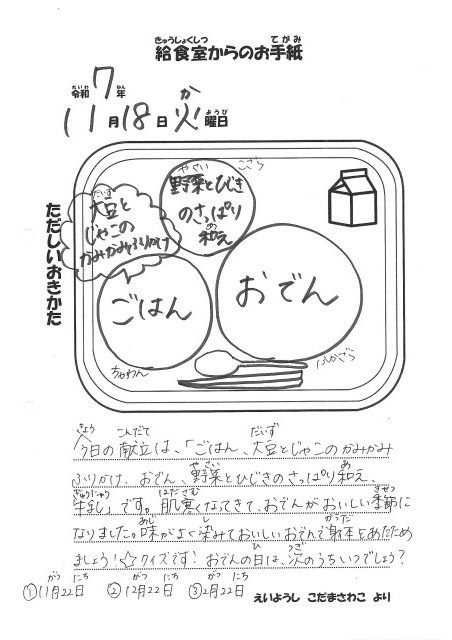 給食室からのお手紙
令和7年
11月18日火曜日
ただしいおきかた
野菜とひじき
のさっぱり
和え
こざら
大豆と
じゃこの
かみかみふりかけ
ごはん
ちゃわん
おでん
ふかざら
今日の献立は、「ごはん、大豆とじゃこのかみかみ
ふりかけ、おでん、野菜とひじきのさっぱり和え、
牛乳」です。肌寒くなってきて、おでんがおいしい季節に
なりました。味がよく染みておいしいおでんで身体をあたため
ましょう!☆クイズです!おでんの日は、次のうちいつでしょう?
①11月22日 ②12月22日 ③2月22日
えいようし こだまさわこ より